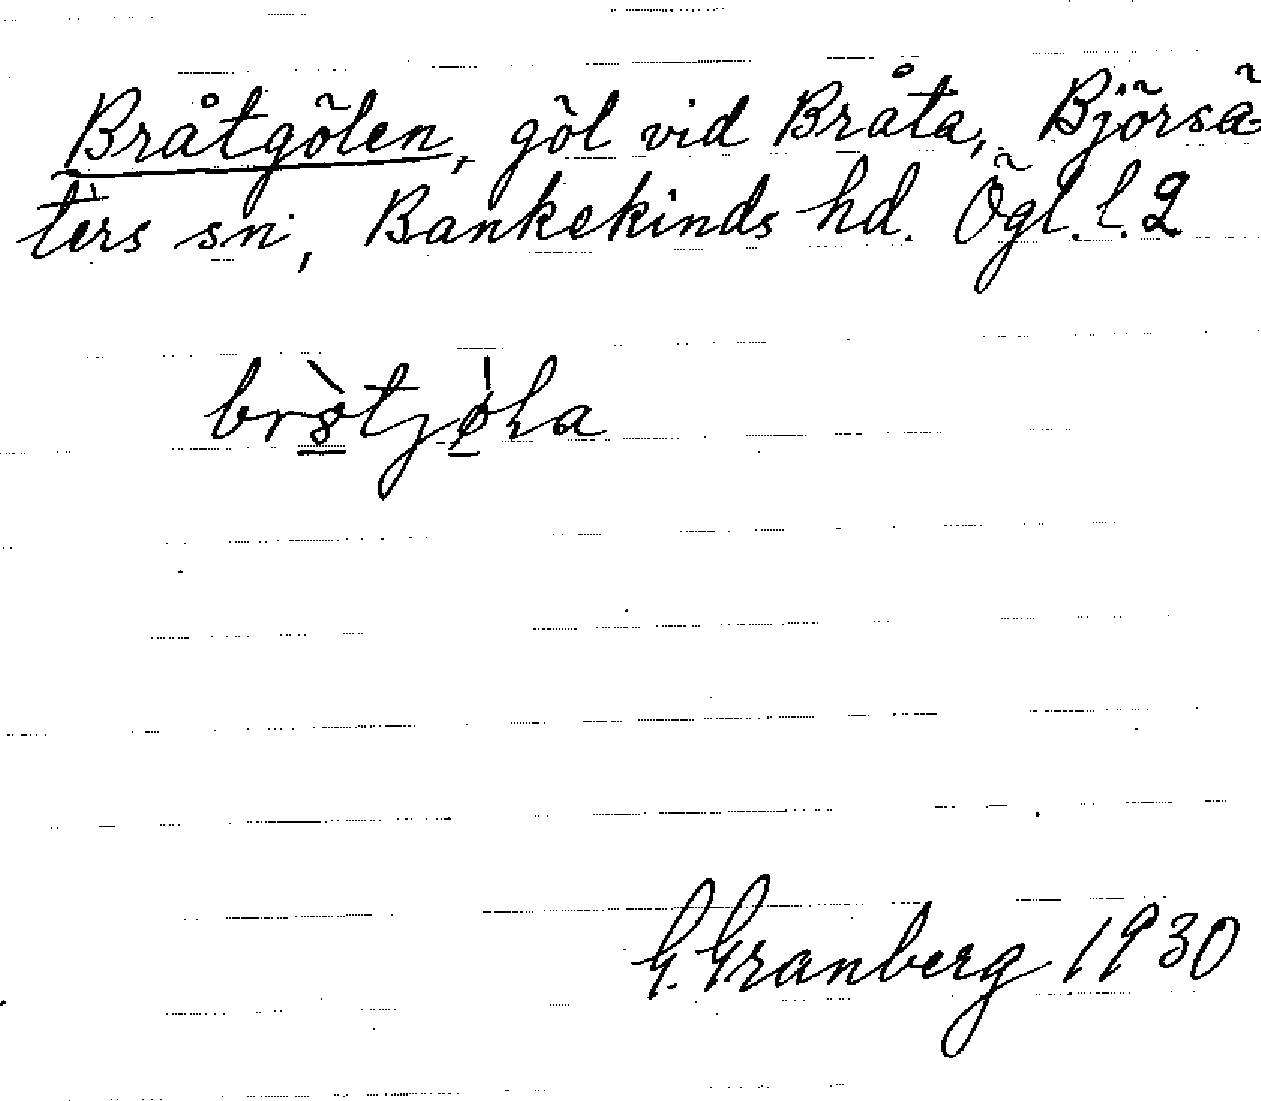 Bråtgölen, göl vid Bråta, Björsä-
ters sn, Bankekinds hd. Ögl. l. 2
G. Granberg 1930